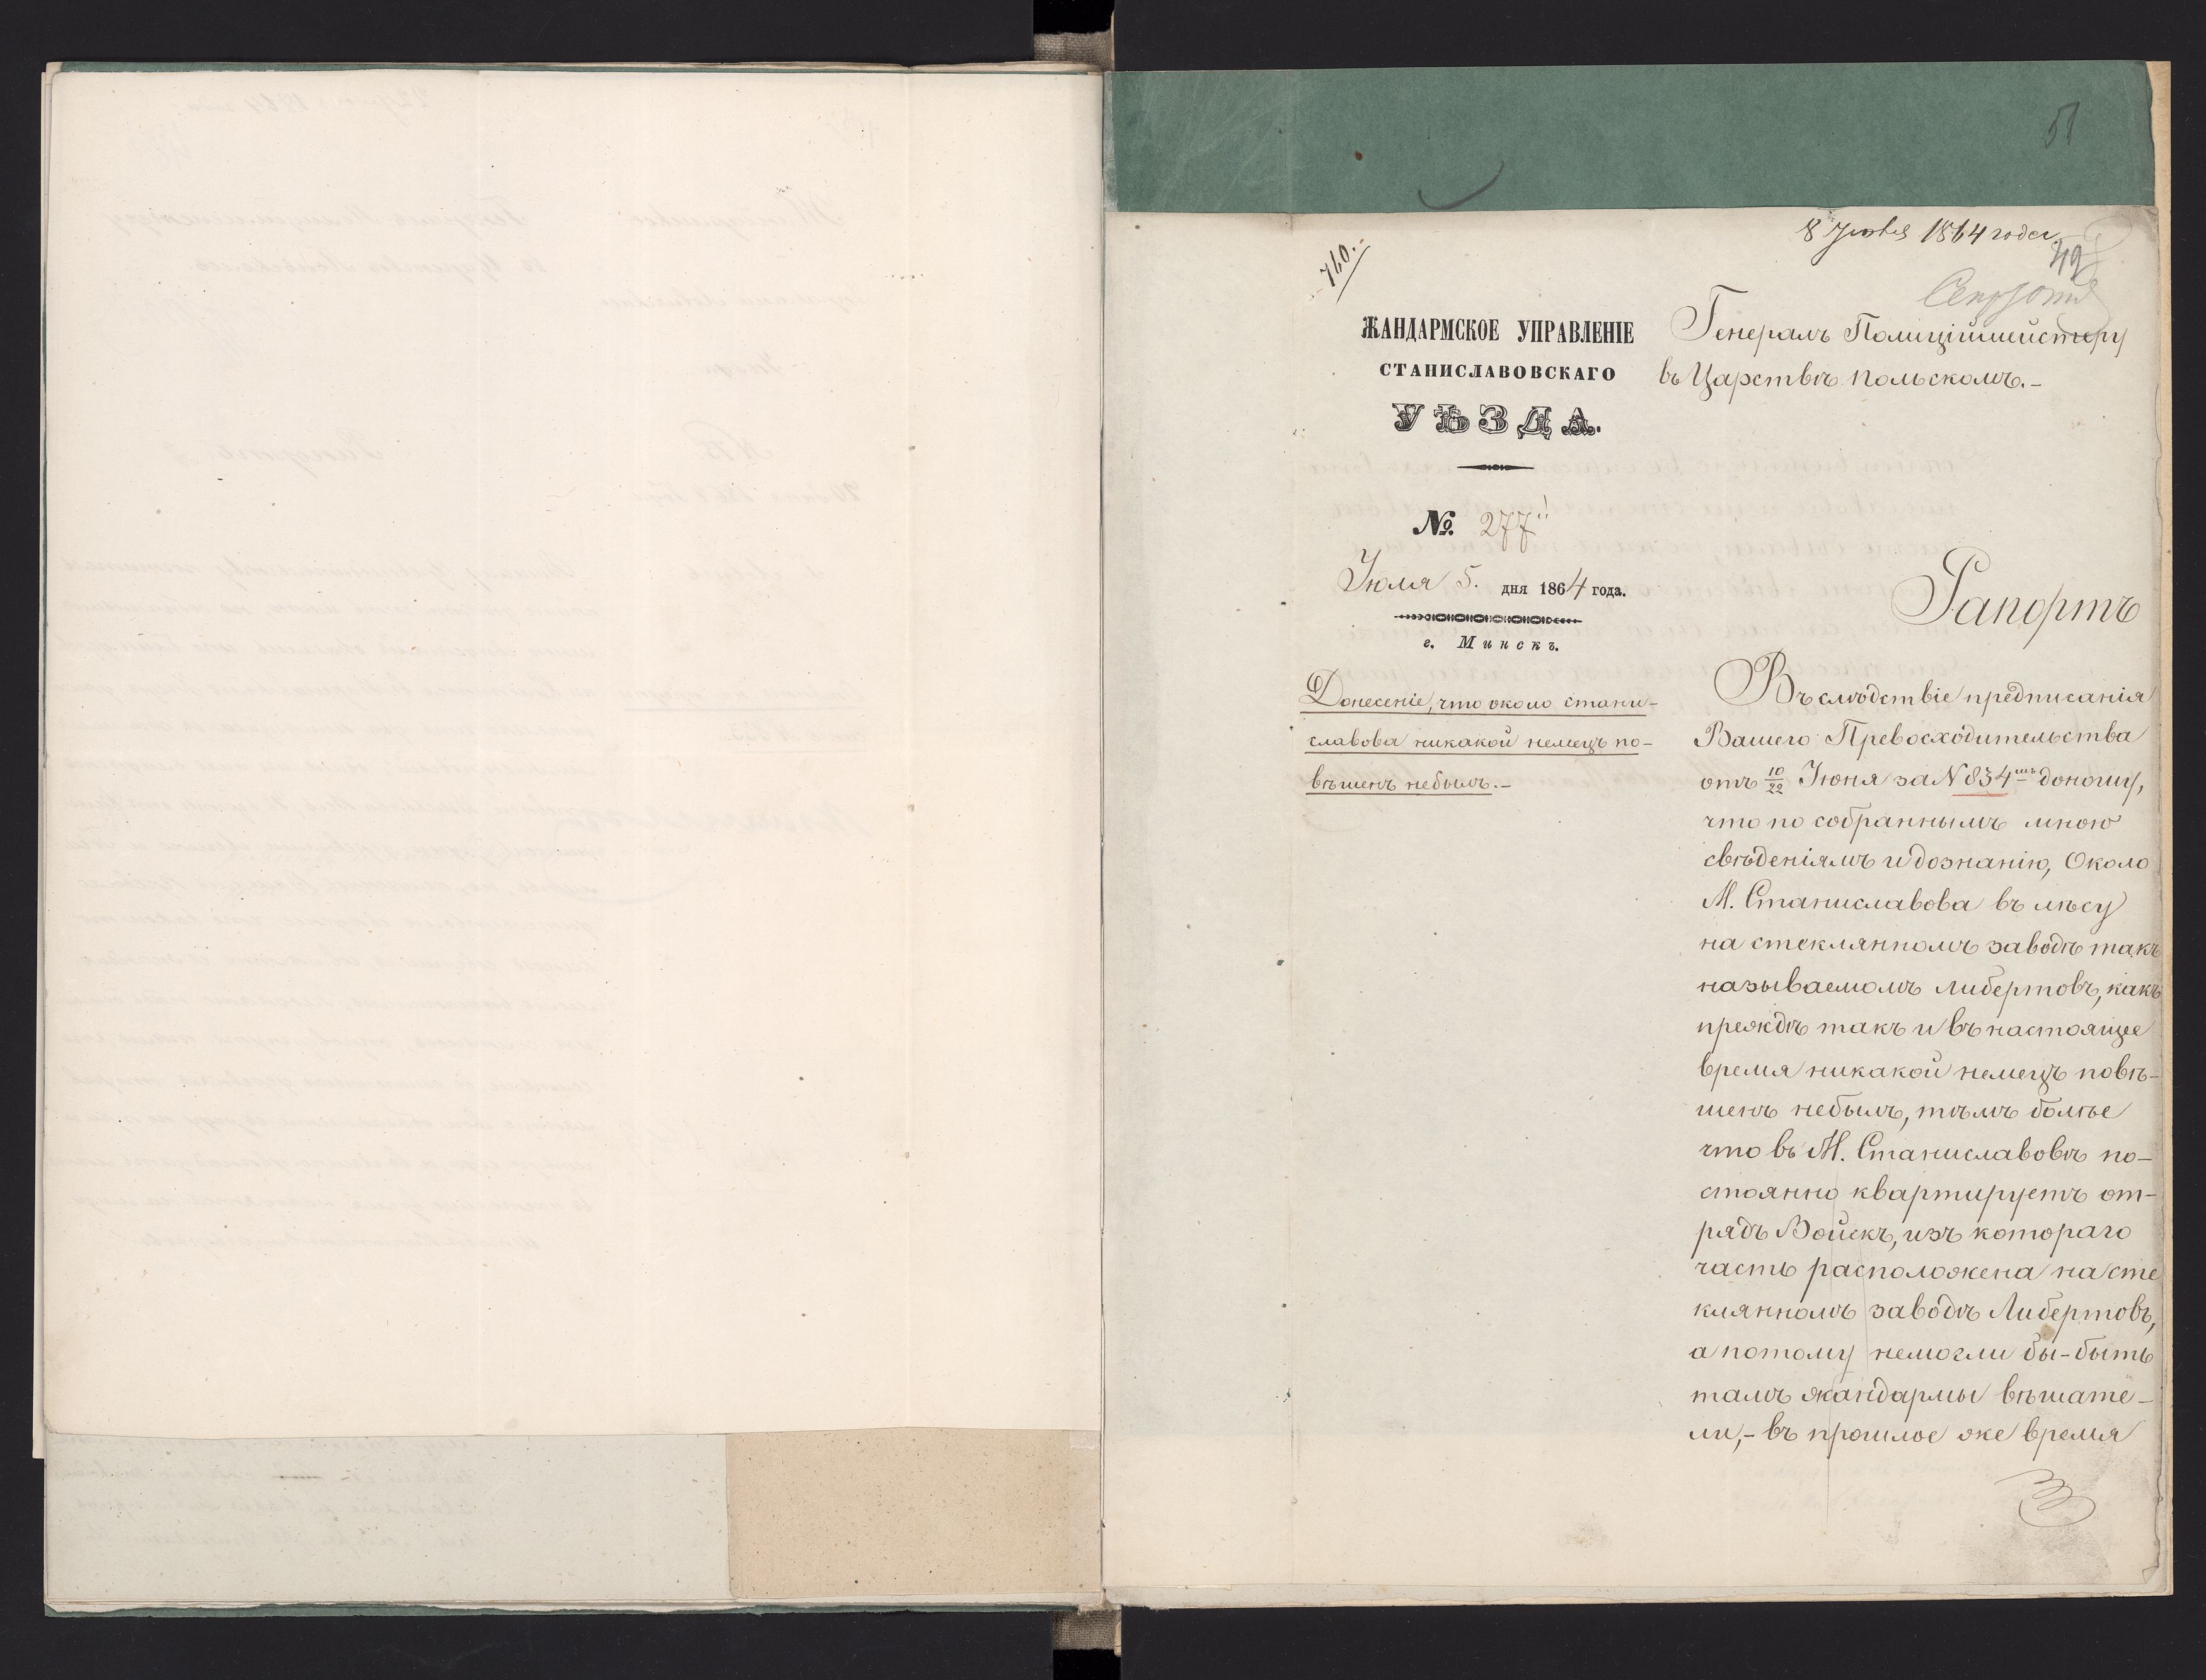 51
8 Іюля 1864 года.
760.
49
ЖАНДАРМСКОЕ УПРАВЛЕНІЕ
СТАНИСЛАВОВСКАГО
УѢЗДА.
№ 277
Іюля 5. дня 1864 года.
г. Минскъ.
Донесеніе, что около Стани-
славова никакой немецъ по-
вѣшенъ небылъ.-
Генералъ Полиційймейстеру
въ Царствѣ Польскомъ.-
Рапортъ
Въ слѣдствіе предписанія
Вашего Превосходительства
отъ 10/22 Іюня за N 834 доношу,
что по собраннымъ мною
свѣденіямъ и дознанію, Около
М. Станиславова въ лѣсу
на стеклянномъ заводѣ такъ
называемомъ Либертовъ, какъ
прежде такъ и въ настоящее
время никакой немецъ повѣ-
шенъ небылъ, тѣмъ болѣе
что въ М. Станиславовѣ по-
стоянно квартируетъ от-
рядъ Войскъ, изъ котораго
часть расположена на сте
клянномъ заводѣ Либертовъ,
а потому немогли бы-быть
тамъ жандармы вѣшате-
ли,- въ прошлое же время